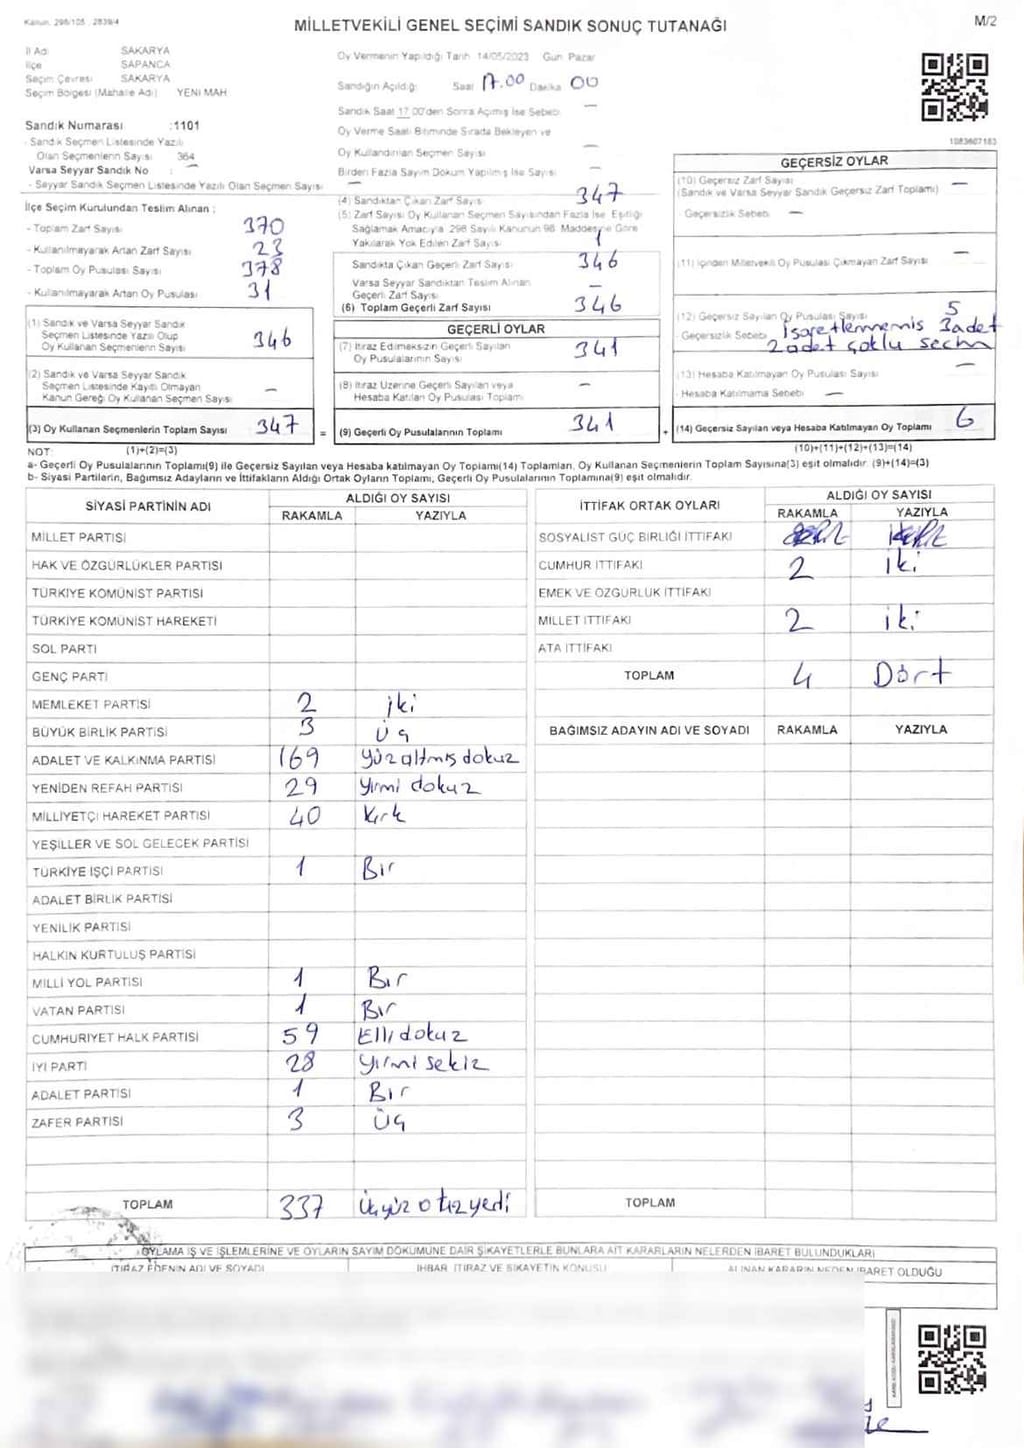 Kanun. 298/105 . 2839/4
MİLLETVEKİLİ GENEL SEÇİMİ SANDIK SONUÇ TUTANAĞI
M/2
İl Adı SAKARYA
İlçe SAPANCA
Seçim Çevresi SAKARYA
Seçim Bölgesi (Mahalle Adı) YENİ MAH
Sandık Numarası :1101
- Sandık Seçmen Listesinde Yazılı
Olan Seçmenlerin Sayısı 364
Varsa Seyyar Sandık No : —
- Seyyar Sandık Seçmen Listesinde Yazılı Olan Seçmen Sayısı —
İlçe Seçim Kurulundan Teslim Alınan :
- Toplam Zarf Sayısı 370
- Kullanılmayarak Artan Zarf Sayısı 23
- Toplam Oy Pusulası Sayısı 378
- Kullanılmayarak Artan Oy Pusulası 31
(1) Sandık ve Varsa Seyyar Sandık
Seçmen Listesinde Yazılı Olup
Oy Kullanan Seçmenlerin Sayısı 346
(2) Sandık ve Varsa Seyyar Sandık
Seçmen Listesinde Kayıtlı Olmayan
Kanun Gereği Oy Kullanan Seçmen Sayısı —
(3) Oy Kullanan Seçmenlerin Toplam Sayısı 347 =
Oy Vermenin Yapıldığı Tarih 14/05/2023 Gün Pazar
Sandığın Açıldığı: Saat 17.00 Dakika 00
Sandık Saat 17.00'den Sonra Açılmış İse Sebebi —
Oy Verme Saati Bitiminde Sırada Bekleyen ve
Oy Kullandırılan Seçmen Sayısı —
Birden Fazla Sayım Döküm Yapılmış İse Sayısı —
(4) Sandıktan Çıkan Zarf Sayısı 347
(5) Zarf Sayısı Oy Kullanan Seçmen Sayısından Fazla İse Eşitliği
Sağlamak Amacıyla 298 Sayılı Kanunun 98. Maddesine Göre
Yakılarak Yok Edilen Zarf Sayısı 1
Sandıkta Çıkan Geçerli Zarf Sayısı 346
Varsa Seyyar Sandıktan Teslim Alınan
Geçerli Zarf Sayısı —
(6) Toplam Geçerli Zarf Sayısı 346
GEÇERLİ OYLAR
(7) İtiraz Edilmeksizin Geçerli Sayılan
Oy Pusulalarının Sayısı 341
(8) İtiraz Üzerine Geçerli Sayılan veya
Hesaba Katılan Oy Pusulası Toplamı —
(9) Geçerli Oy Pusulalarının Toplamı 341 +
1083607183
GEÇERSİZ OYLAR
(10) Geçersiz Zarf Sayısı
(Sandık ve Varsa Seyyar Sandık Geçersiz Zarf Toplamı) —
- Geçersizlik Sebebi —
(11) İçinden Milletvekili Oy Pusulası Çıkmayan Zarf Sayısı —
(12) Geçersiz Sayılan Oy Pusulası Sayısı 5
- Geçersizlik Sebebi İşaretlenmemiş 3 adet
2 adet çoklu seçim
(13) Hesaba Katılmayan Oy Pusulası Sayısı —
- Hesaba Katılmama Sebebi —
(14) Geçersiz Sayılan veya Hesaba Katılmayan Oy Toplamı 6
NOT: (1)+(2)=(3) (10)+(11)+(12)+(13)=(14)
a- Geçerli Oy Pusulalarının Toplamı(9) ile Geçersiz Sayılan veya Hesaba katılmayan Oy Toplamı(14) Toplamları, Oy Kullanan Seçmenlerin Toplam Sayısına(3) eşit olmalıdır. (9)+(14)=(3)
b- Siyasi Partilerin, Bağımsız Adayların ve İttifakların Aldığı Ortak Oyların Toplamı, Geçerli Oy Pusulalarının Toplamına(9) eşit olmalıdır.
SİYASİ PARTİNİN ADI ALDIĞI OY SAYISI
RAKAMLA YAZIYLA
MİLLET PARTİSİ
HAK VE ÖZGÜRLÜKLER PARTİSİ
TÜRKİYE KOMÜNİST PARTİSİ
TÜRKİYE KOMÜNİST HAREKETİ
SOL PARTİ
GENÇ PARTİ
MEMLEKET PARTİSİ 2 iki
BÜYÜK BİRLİK PARTİSİ 3 üç
ADALET VE KALKINMA PARTİSİ 169 yüzaltmış dokuz
YENİDEN REFAH PARTİSİ 29 yirmi dokuz
MİLLİYETÇİ HAREKET PARTİSİ 40 kırk
YEŞİLLER VE SOL GELECEK PARTİSİ
TÜRKİYE İŞÇİ PARTİSİ 1 Bir
ADALET BİRLİK PARTİSİ
YENİLİK PARTİSİ
HALKIN KURTULUŞ PARTİSİ
MİLLİ YOL PARTİSİ 1 Bir
VATAN PARTİSİ 1 Bir
CUMHURİYET HALK PARTİSİ 59 Elli dokuz
İYİ PARTİ 28 yirmi sekiz
ADALET PARTİSİ 1 Bir
ZAFER PARTİSİ 3 üç
TOPLAM 337 üçyüz otuzyedi
İTTİFAK ORTAK OYLARI ALDIĞI OY SAYISI
RAKAMLA YAZIYLA
SOSYALİST GÜÇ BİRLİĞİ İTTİFAKI
CUMHUR İTTİFAKI 2 iki
EMEK VE ÖZGÜRLÜK İTTİFAKI
MİLLET İTTİFAKI 2 iki
ATA İTTİFAKI
TOPLAM 4 Dört
BAĞIMSIZ ADAYIN ADI VE SOYADI RAKAMLA YAZIYLA
TOPLAM
OYLAMA İŞ VE İŞLEMLERİNE VE OYLARIN SAYIM DÖKÜMÜNE DAİR ŞİKAYETLERLE BUNLARA AİT KARARLARIN NELERDEN İBARET BULUNDUKLARI
İTİRAZ EDENİN ADI VE SOYADI İHBAR, İTİRAZ VE ŞİKAYETİN KONUSU ALINAN KARARIN NEDEN İBARET OLDUĞU